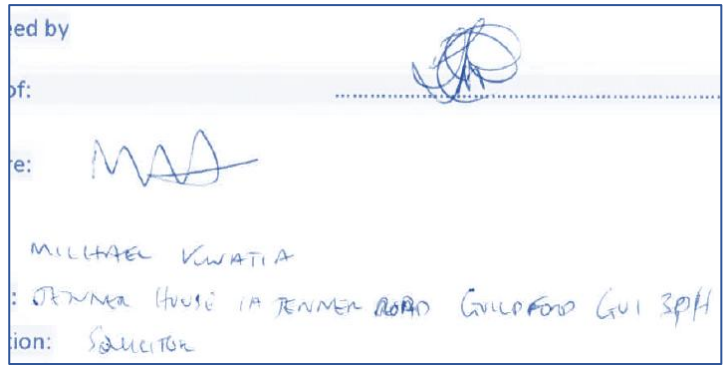 eed by
of:
re:
MICHAEL KWATIA
: JENNER HOUSE 1A JENNER ROAD GUILDFORD GU1 3PH
tion: SOLICITOR